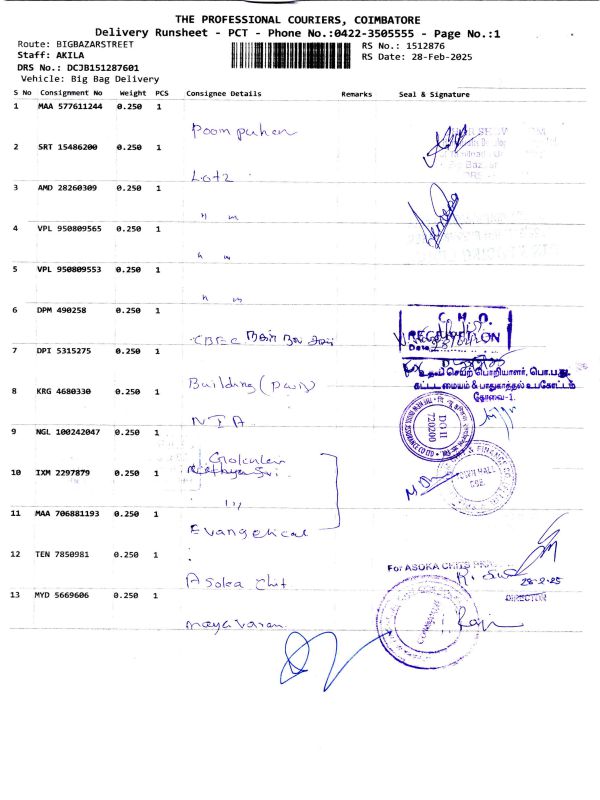 THE PROFESSIONAL COURIERS, COIMBATORE
Delivery Runsheet - PCT - Phone No.:0422-3505555 - Page No.:1
Route: BIGBAZARSTREET
RS No.: 1512876
Staff: AKILA
RS Date: 28-Feb-2025
DRS No.: DCJB151287601
Vehicle: Big Bag Delivery
S No Consignment No Weight PCS Consignee Details Remarks Seal & Signature
1 MAA 577611244 0.250 1
Poompuhar
2 SRT 15486200 0.250 1
Lotz
3 AMD 28260309 0.250 1
" "
4 VPL 950809565 0.250 1
" "
5 VPL 950809553 0.250 1
" "
6 DPM 490258 0.250 1
C. M. O.
RECEPTION
CBEC
7 DPI 5315275 0.250 1
உதவி செயற் பொறியாளர், பொ.ப.து.
Building (PWD)
கட்டட மையம் & பாதுகாத்தல் உபகோட்டம்
கோவை-1.
8 KRG 4680330 0.250 1
NIA
DO II
720200
9 NGL 100242047 0.250 1
Gokulam
10 IXM 2297879 0.250 1
TOWN HALL
CBE.
11 MAA 706881193 0.250 1
Evangelical
12 TEN 7850981 0.250 1
For ASOKA CHITS
Asoka Chit
28-2-25
DIRECTOR
13 MYD 5669606 0.250 1
mayavaram